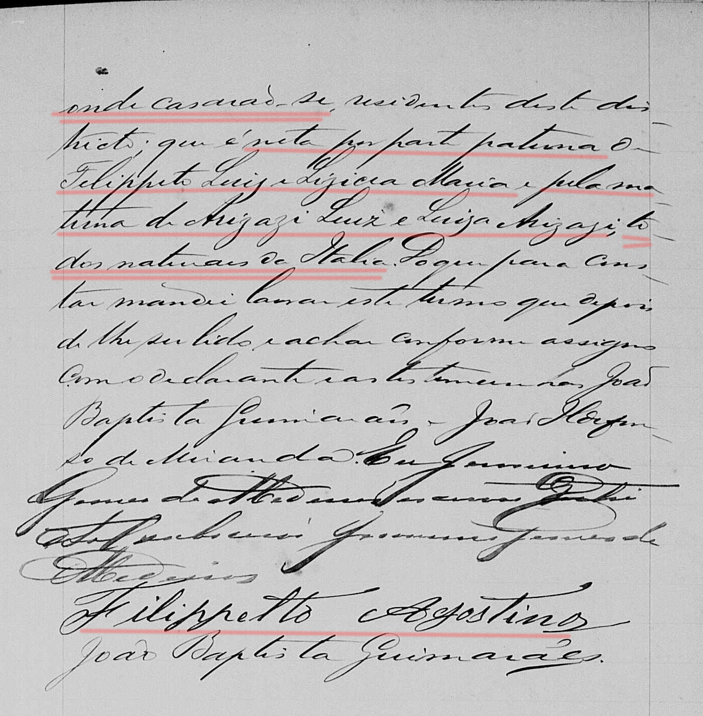 onde casarão-se, residentes deste dis-
tricto; que é neta por parte paterna de
Filippeto Luiz e Ligicia Maria e pela ma-
terna de Arigazi Luiz e Luiza Arigazi, to-
dos naturais da Italia. Do que para cons-
tar mandei lavrar este termo que depois
de lhe ser lido e achar conforme assigna
com o declarante e as testemunhas João
Baptista Guimarães e João Ildefon-
so de Miranda. Eu Jeronimo
Gomes de Medeiros escrivão
Jeronimo Gomes de
Medeiros
Filippetto Agostino
João Baptista Guimarães.